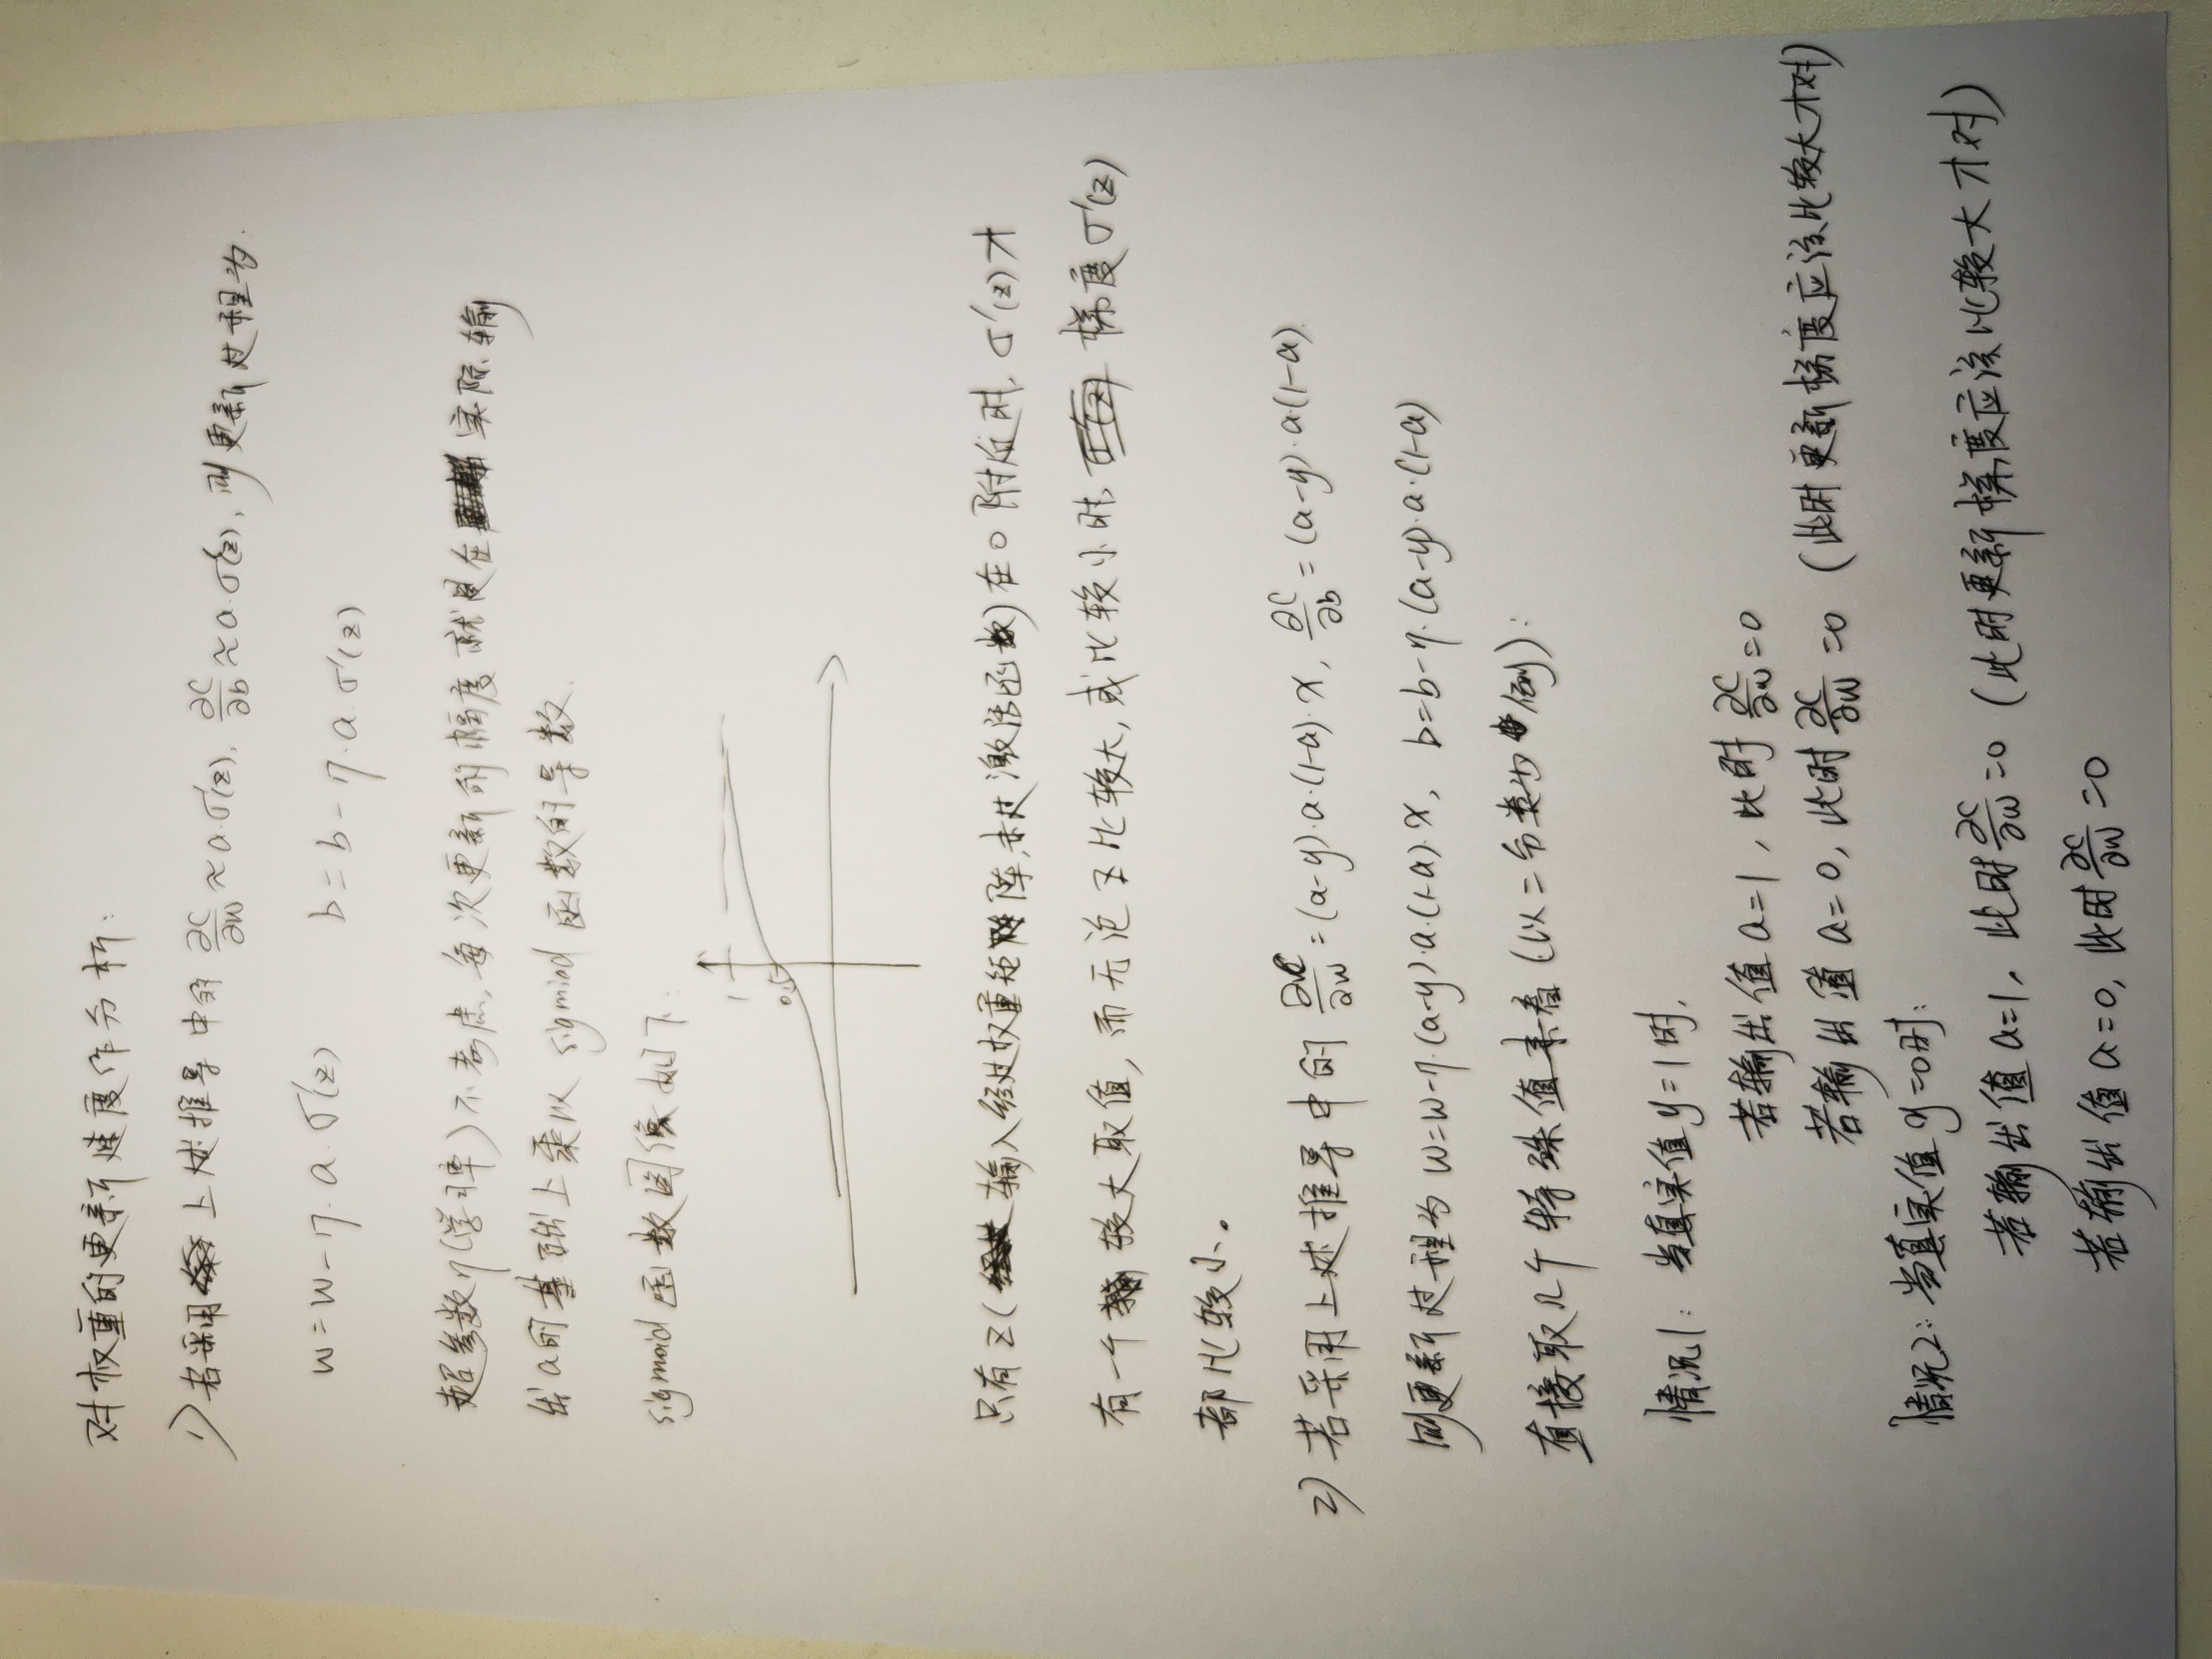 对权重的更新速度作分析:
1) 若采用上述推导中的 ∂C/∂w ≈ a·σ'(z), ∂C/∂b ≈ a·σ'(z), 则更新过程为
w = w - η·a·σ'(z)  b = b - η·a·σ'(z)
超参数η(学习率)不考虑, 每次更新的幅度就是在实际输
出a的基础上乘以 sigmiod 函数的导数.
sigmoid 函数图像如下.
1
0.5
只有z(输入经过权重矩阵,未过激活函数)在0附近时, σ'(z)才
有一个较大取值, 而无论z比较大, 或比较小时 梯度σ'(z)
都比较小。
2) 若采用上述推导中的 ∂C/∂w = (a-y)·a·(1-a)·x, ∂C/∂b = (a-y)·a·(1-a).
则更新过程为 w=w-η·(a-y)·a·(1-a)·x, b=b-η·(a-y)·a·(1-a)
直接取几个特殊值来看(以二分类为例):
情况1: 当真实值y=1时,
若输出值a=1, 此时 ∂C/∂w = 0
若输出值a=0, 此时 ∂C/∂w = 0 (此时更新梯度应该比较大才对)
情况2: 当真实值y=0时:
若输出值a=1, 此时 ∂C/∂w = 0 (此时更新梯度应该比较大才对)
若输出值a=0, 此时 ∂C/∂w = 0